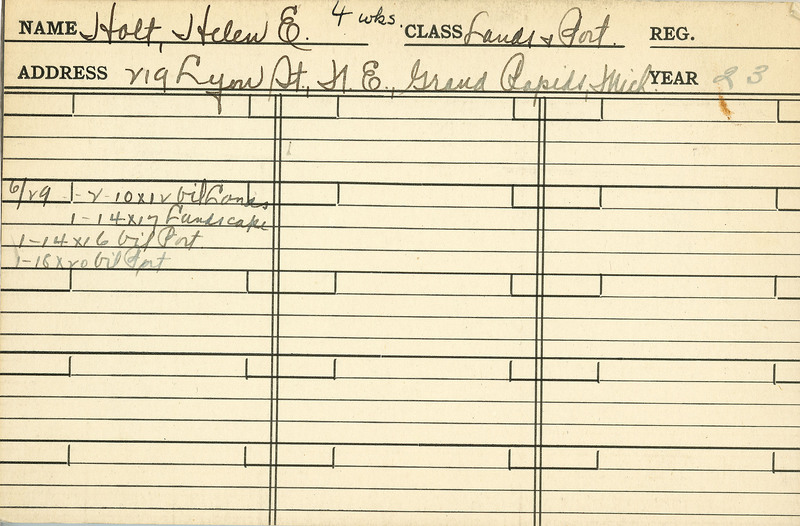 NAME Holt, Helen E. 4 wks. CLASS Lands & Port. REG.
ADDRESS 219 Lyon St., N.E., Grand Rapids, Mich. YEAR 23
6/29 1-2-10x12 Oil Lands
1-14x17 Landscape
1-14x16 Oil Port
1-18x20 Oil Port